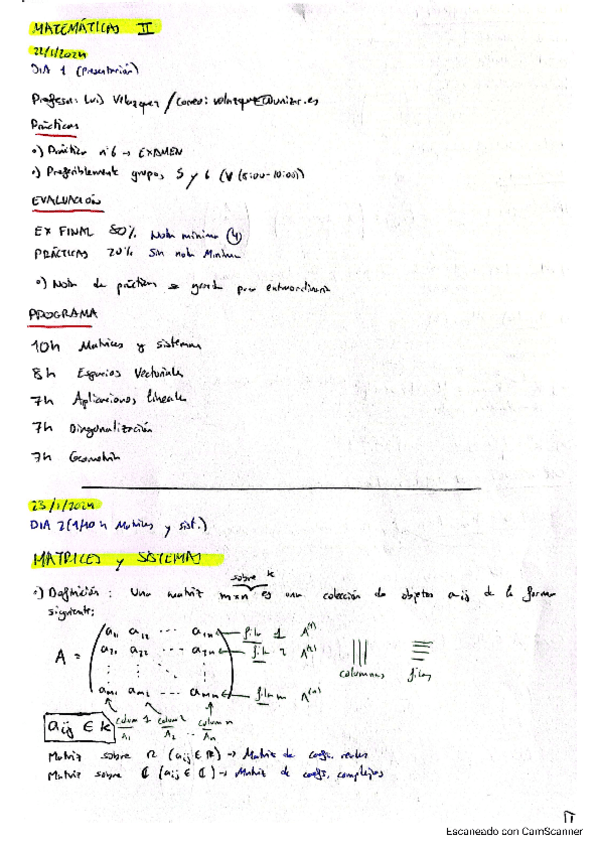 MATEMÁTICAS II
22/1/2024
DIA 1 (Presentación)
Profesor: Luis Velazquez / correo: velazque@unizar.es
Prácticas
•) Práctica nº6 → EXAMEN
•) Preferiblemente grupos 5 y 6
EVALUACIÓN
EX FINAL 80% Nota mínima (4)
PRÁCTICAS 20% Sin nota Mínima
•) Nota de prácticas se guarda para extraordinaria
PROGRAMA
10h Matrices y sistemas
8h Espacios Vectoriales
7h Aplicaciones lineales
7h Diagonalización
7h Geometría
23/1/2024
DIA 2 (1/10 h Matrices y sist.)
MATRICES y SISTEMAS
sobre k
•) Definición: Una matriz m×n es una colección de objetos aij de la forma
siguiente:
a11 a12 ... a1n ← fila 1 A(1)
A = a21 a22 ... a2n ← fila 2 A(2)
columnas filas
am1 am2 ... amn ← fila m A(m)
aij ∈ k
colum 1 colum 2 column n
A1 A2 ... An
Matriz sobre R (aij ∈ R) → Matriz de coefs. reales
Matriz sobre ℂ (aij ∈ ℂ) → Matriz de coefs. complejos
Escaneado con CamScanner